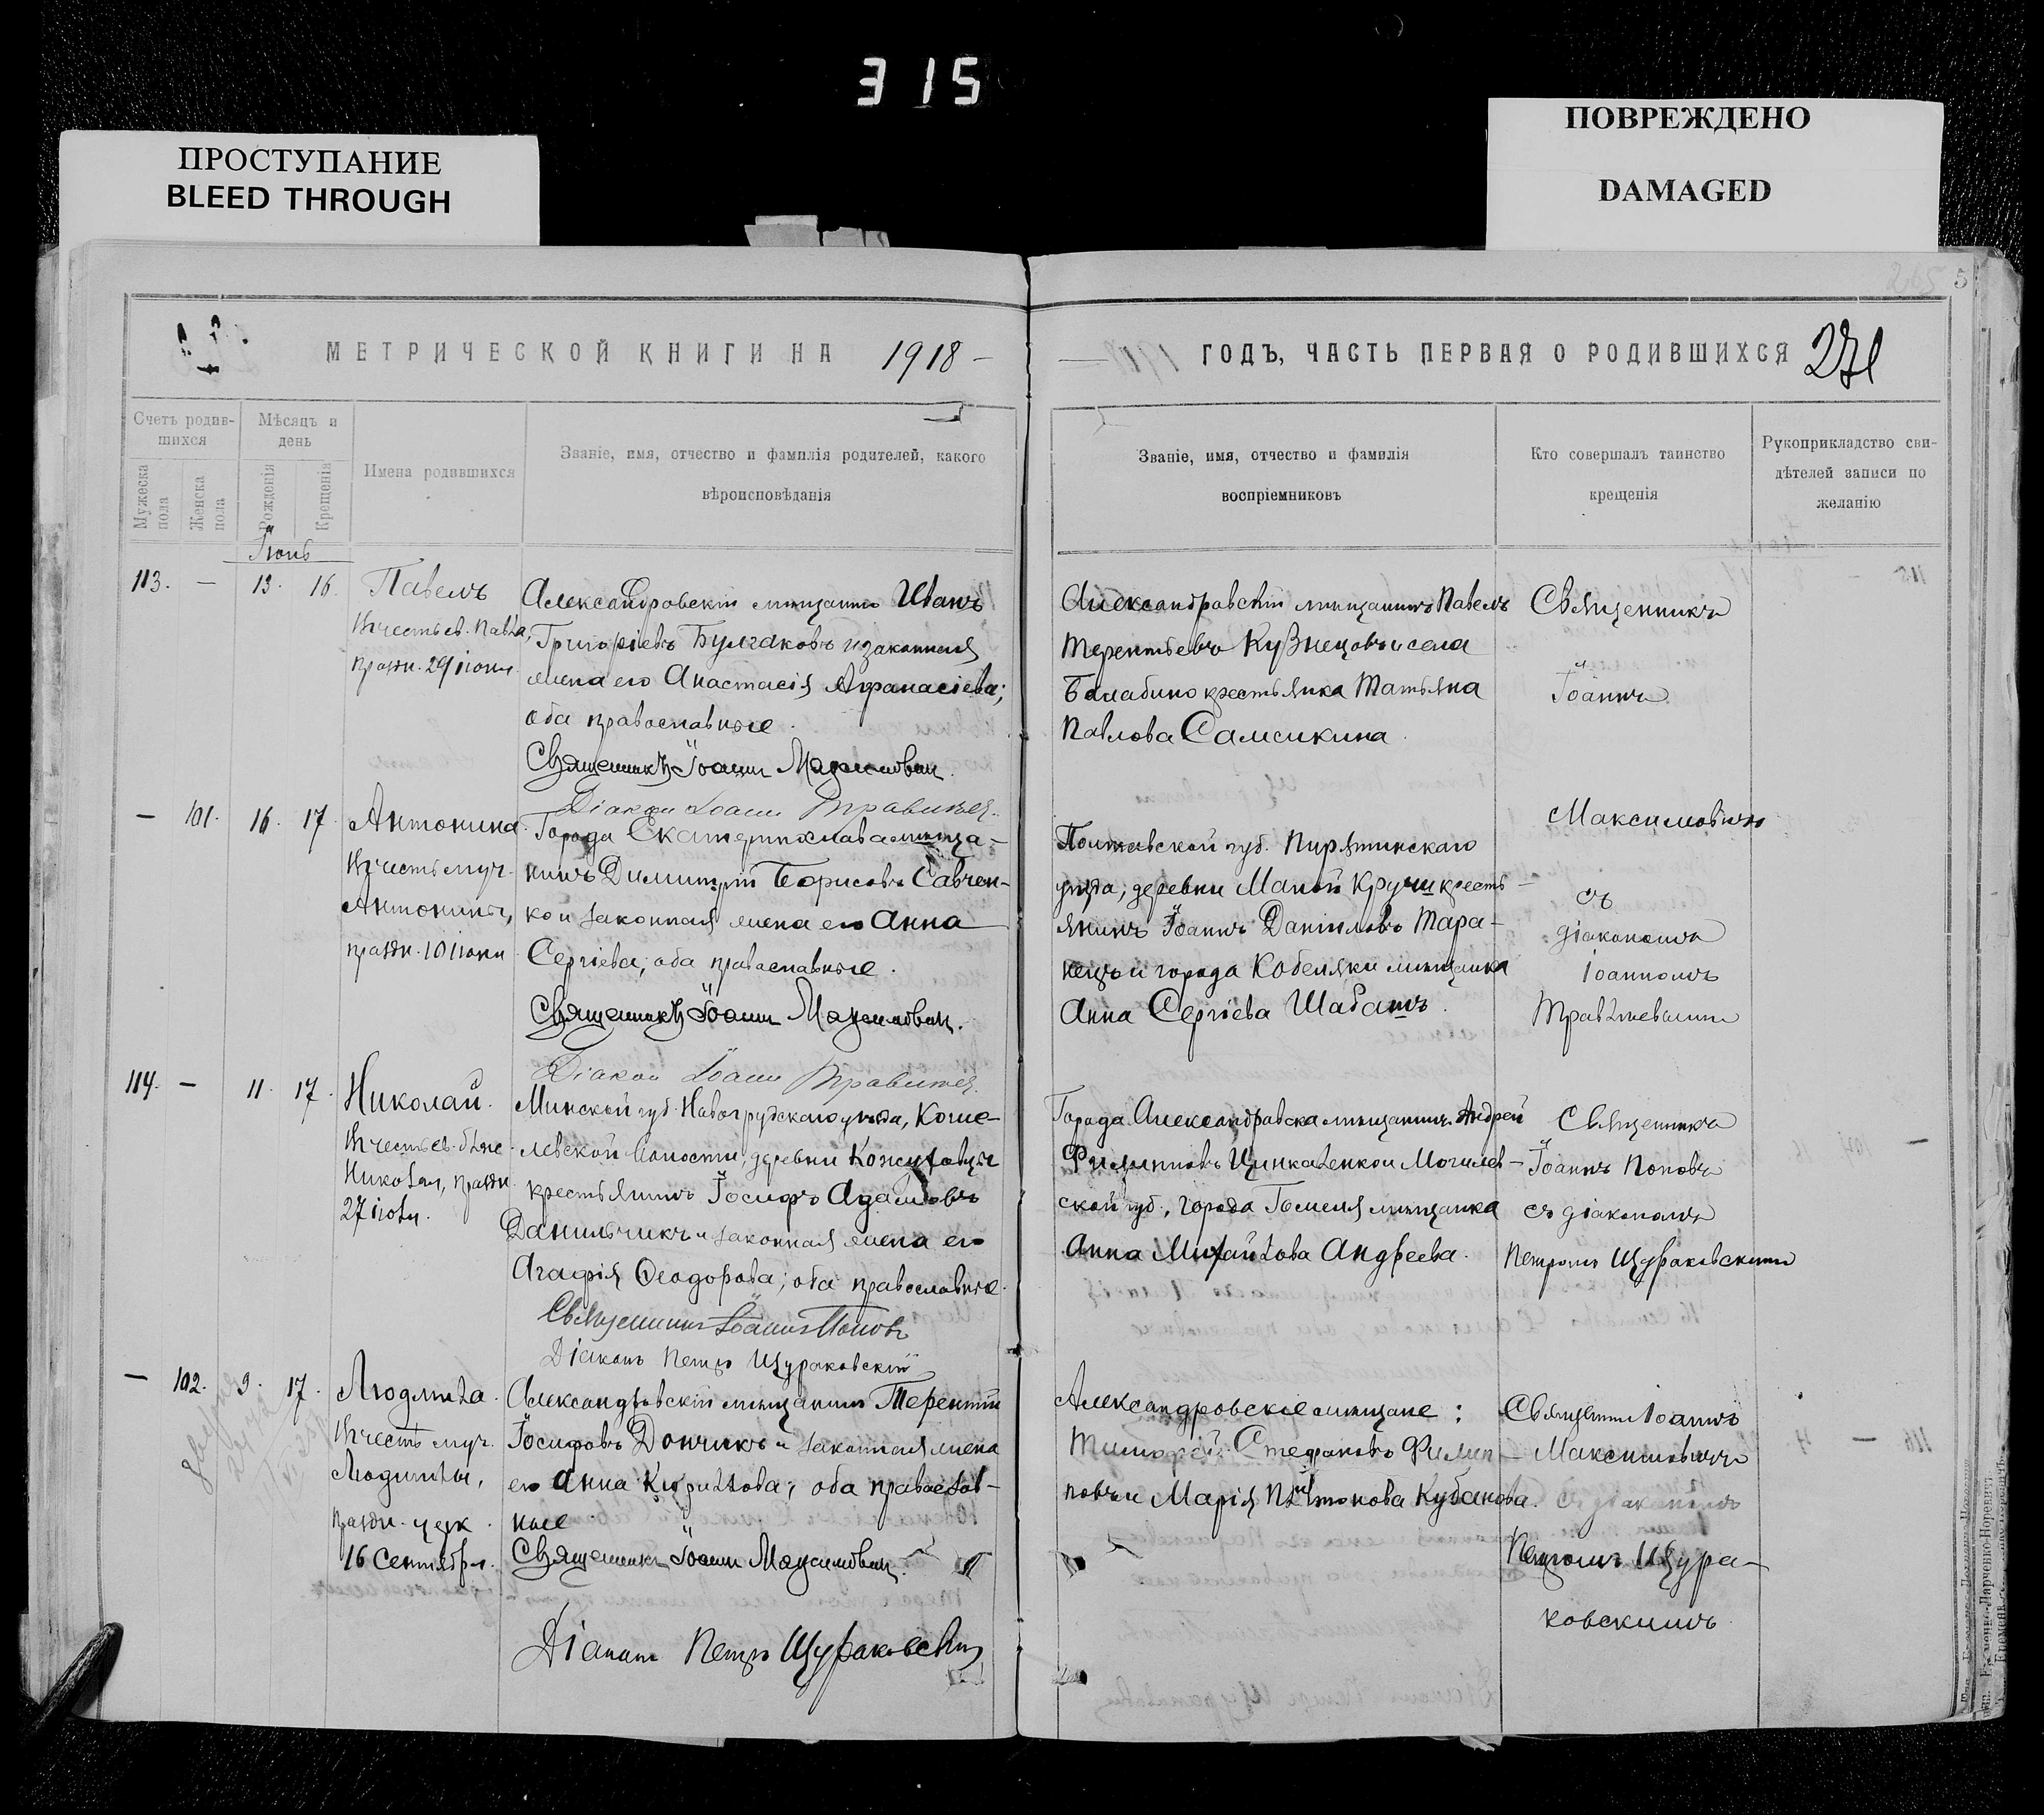 315
ПРОСТУПАНИЕ
BLEED THROUGH
ПОВРЕЖДЕНО
DAMAGED
МЕТРИЧЕСКОЙ КНИГИ НА 1918
ГОДЪ, ЧАСТЬ ПЕРВАЯ О РОДИВШИХСЯ
Счетъ родив-
шихся
Мужеска пола
Женска пола
Мѣсяцъ и
день
Рожденія
Крещенія
Имена родившихся
Званіе, имя, отчество и фамилія родителей, какого
вѣроисповѣданія
Званіе, имя, отчество и фамилія
воспріемниковъ
Кто совершалъ таинство
крещенія
Рукоприкладство сви-
дѣтелей записи по
желанію
113. — 13. 16.
Павелъ
въ честь св. Павла,
праздн. 29 іюня
Александровскій мѣщанинъ Иванъ
Григоріевъ Булгаковъ и законная
жена его Анастасія Афанасіева;
оба православные.
Священникъ Іоаннъ Максимович.
Александровскій мѣщанинъ Павелъ
Терентьевъ Кузнецовъ и села
Балабино крестьянка Татьяна
Павлова Самсикина.
Священникъ
Іоаннъ
Максимовичъ
съ
діакономъ
Іоанномъ
— 101. 16. 17.
Антонина
въ честь муч.
Антонины,
праздн. 10 іюня
Діакон Іоанн
Города Екатеринослава мѣща-
нинъ Димитрій Борисовъ Савчен-
ко и законная жена его Анна
Сергіева; оба православные.
Священникъ Іоаннъ Максимович.
Полтавской губ. Пирятинскаго
уѣзда, деревни Малой Кручи кресть-
янинъ Іоаннъ Даніиловъ Тара-
нецъ и города Кобеляки мѣщанка
Анна Сергіева Шабатъ.
114. — 11. 17.
Николай.
Въ честь св. блаж.
Николая, праздн.
27 іюля.
Діакон Іоанн
Минской губ. Новогрудскаго уѣзда, Коше-
левской волости, деревни
крестьянинъ Іосифъ Адамовъ
Данильчикъ и законная жена его
Агафія Ѳеодорова; оба православные.
Священникъ Іоаннъ Поповъ
Діаконъ Петръ Щураковскій
Города Александровска мѣщанинъ Андрей
Филипповъ Цинкаленко и Могилев-
ской губ., города Гомеля мѣщанка
Анна Михайлова Андреева.
Священникъ
Іоаннъ Поповъ
съ діакономъ
Петромъ Щураковскимъ
— 102. 9. 17.
Людмила.
Въ честь муч.
Людмилы,
праздн. церк.
16 Сентября.
Александровскій мѣщанинъ Терентій
Іосифовъ Дончикъ и законная жена
его Анна Кирилова; оба православ-
ные
Священникъ Іоаннъ Максимович.
Діаконъ Петръ Щураковскій
Александровскіе мѣщане:
Тимофей Стефановъ Филип-
повъ и Марія Платонова Кубанова.
Священникъ Іоаннъ
Максимовичъ
съ діакономъ
Петромъ Щура-
ковскимъ